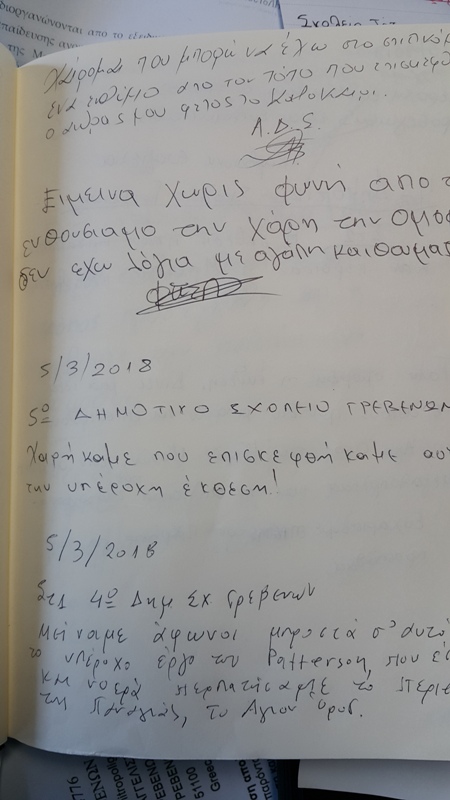 διοργανώνονται απο το
Σχολείο
Χαίρομαι που μπορώ να έχω στο σπιτικό
ένα ενθύμιο απο τον τόπο που επισκέφθ
ο άνδρας μου φέτος το καλοκαίρι.
Λ.Δ.Σ.
Εμεινα χωρις φωνή απο τ
ενθουσιαμο την χάρη την ομο
δεν εχω λόγια με αγαπη και θαυμασ
5/3/2018
5ο ΔΗΜΟΤΙΚΟ ΣΧΟΛΕΙΟ ΓΡΕΒΕΝΩΝ
Χαρήκαμε που επισκεφθήκαμε αυ
την υπέροχη έκθεση!
5/3/2018
Στ1 4ο Δημ Σχ Γρεβενών
Μείναμε άφωνοι μπροστά σ' αυτό
το υπέροχο έργο του Patterson, που
και νοερά περπατήσαμε το περι
της Παναγιάς, το Άγιον Όρος.
5776
ΕΝΩΝ
51100
Greec